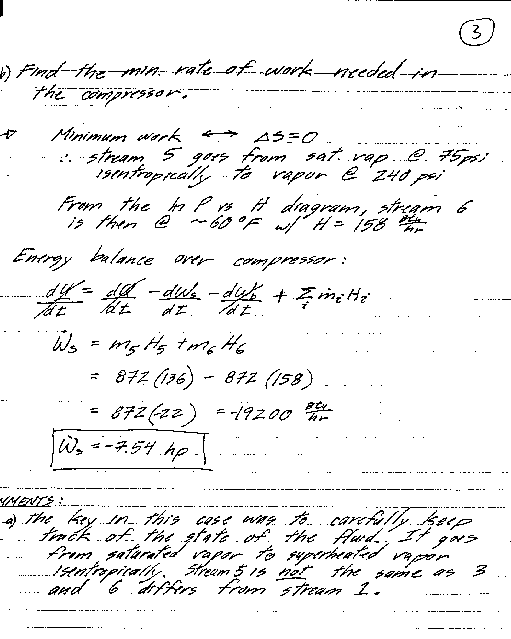 3
b) Find the min. rate of work needed in
the compressor.
Minimum work ↔ ΔS=0
∴ stream 5 goes from sat. vap @ 75psi
isentropically to vapor @ 240 psi
From the ln P vs H diagram, stream 6
is then @ ~60 °F w/ H = 158 Btu/hr
Energy balance over compressor:
dU/dt = dQ/dt - dWs/dt - dW/dt + Σi ṁiHi
Ẇs = m5 H5 + m6 H6
= 872 (136) - 872 (158)
= 872(-22) = -19200 Btu/hr
Ẇs = -7.54 hp
MMENTS:
a) The key in this case was to carefully keep
track of the state of the fluid. It goes
from saturated vapor to superheated vapor
isentropically. Stream 5 is not the same as 3
and 6 differs from stream 1.